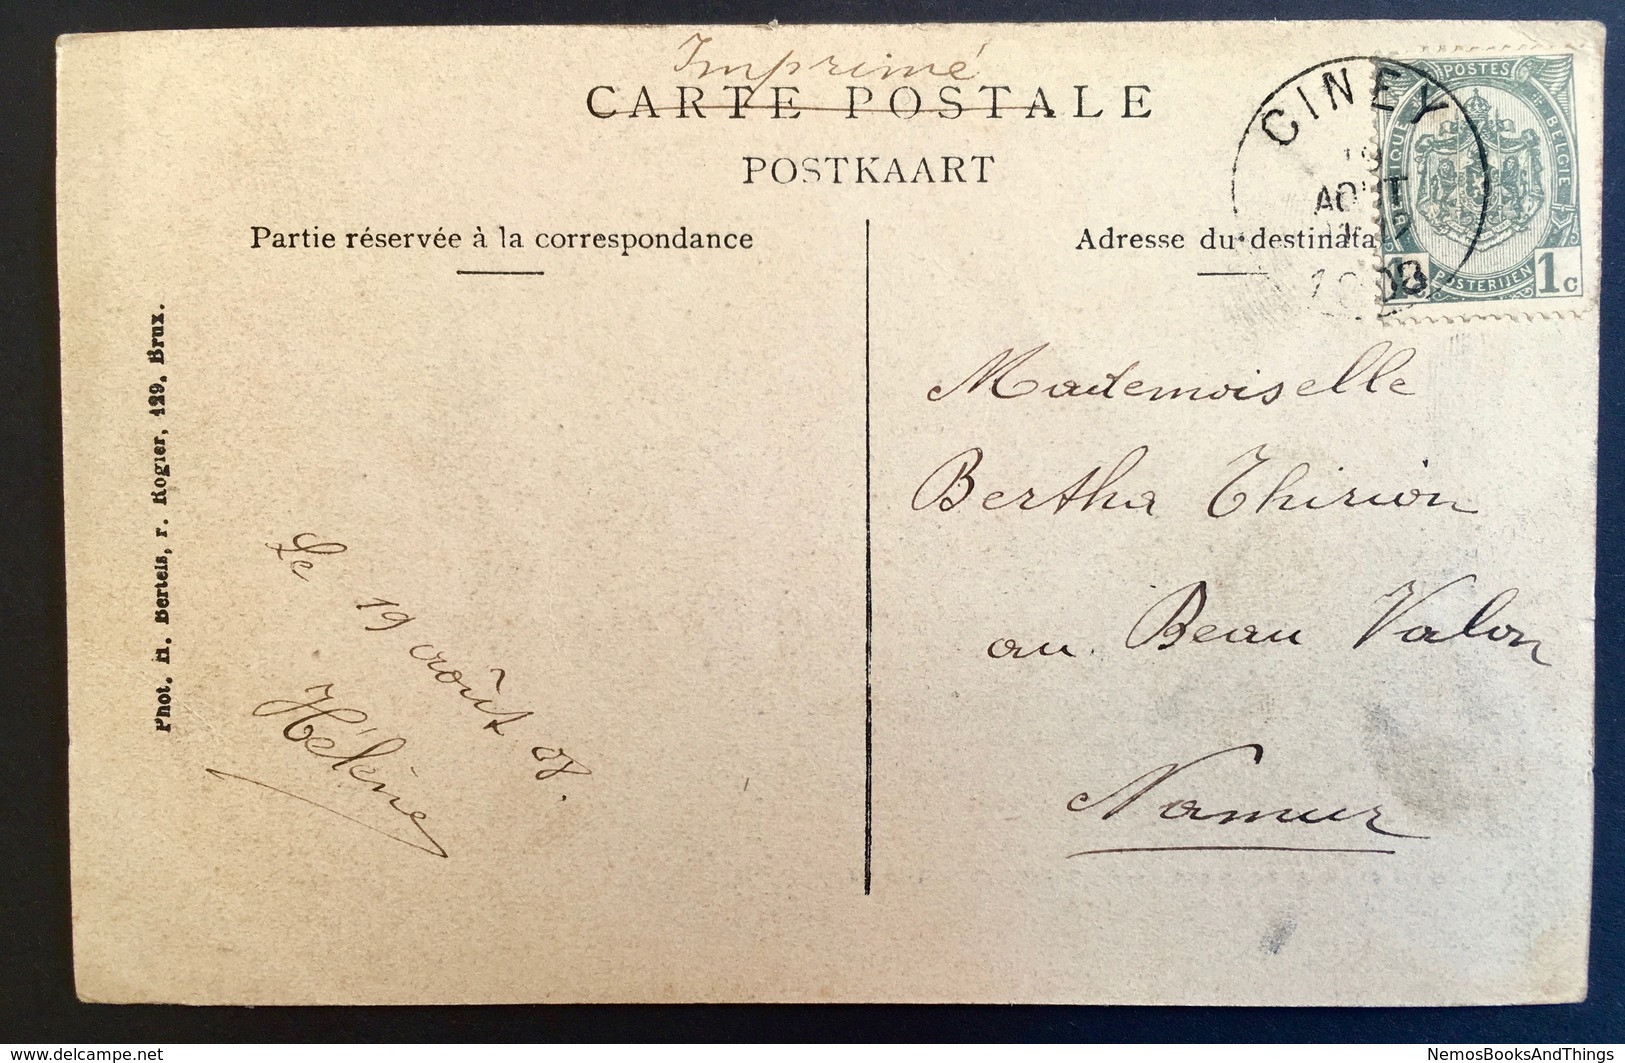 Imprimé
CARTE POSTALE
POSTKAART
CINEY
AOUT
POSTES
BELGIE
POSTERIJEN
1c
Partie réservée à la correspondance
Adresse du destinata
Phot. H. Bertels, r. Rogier, 129, Brux.
Mademoiselle
Bertha Thirion
au Beau Valon
Namur
Le 19 août 08.
Hélène
www.delcampe.net
NemosBooksAndThings